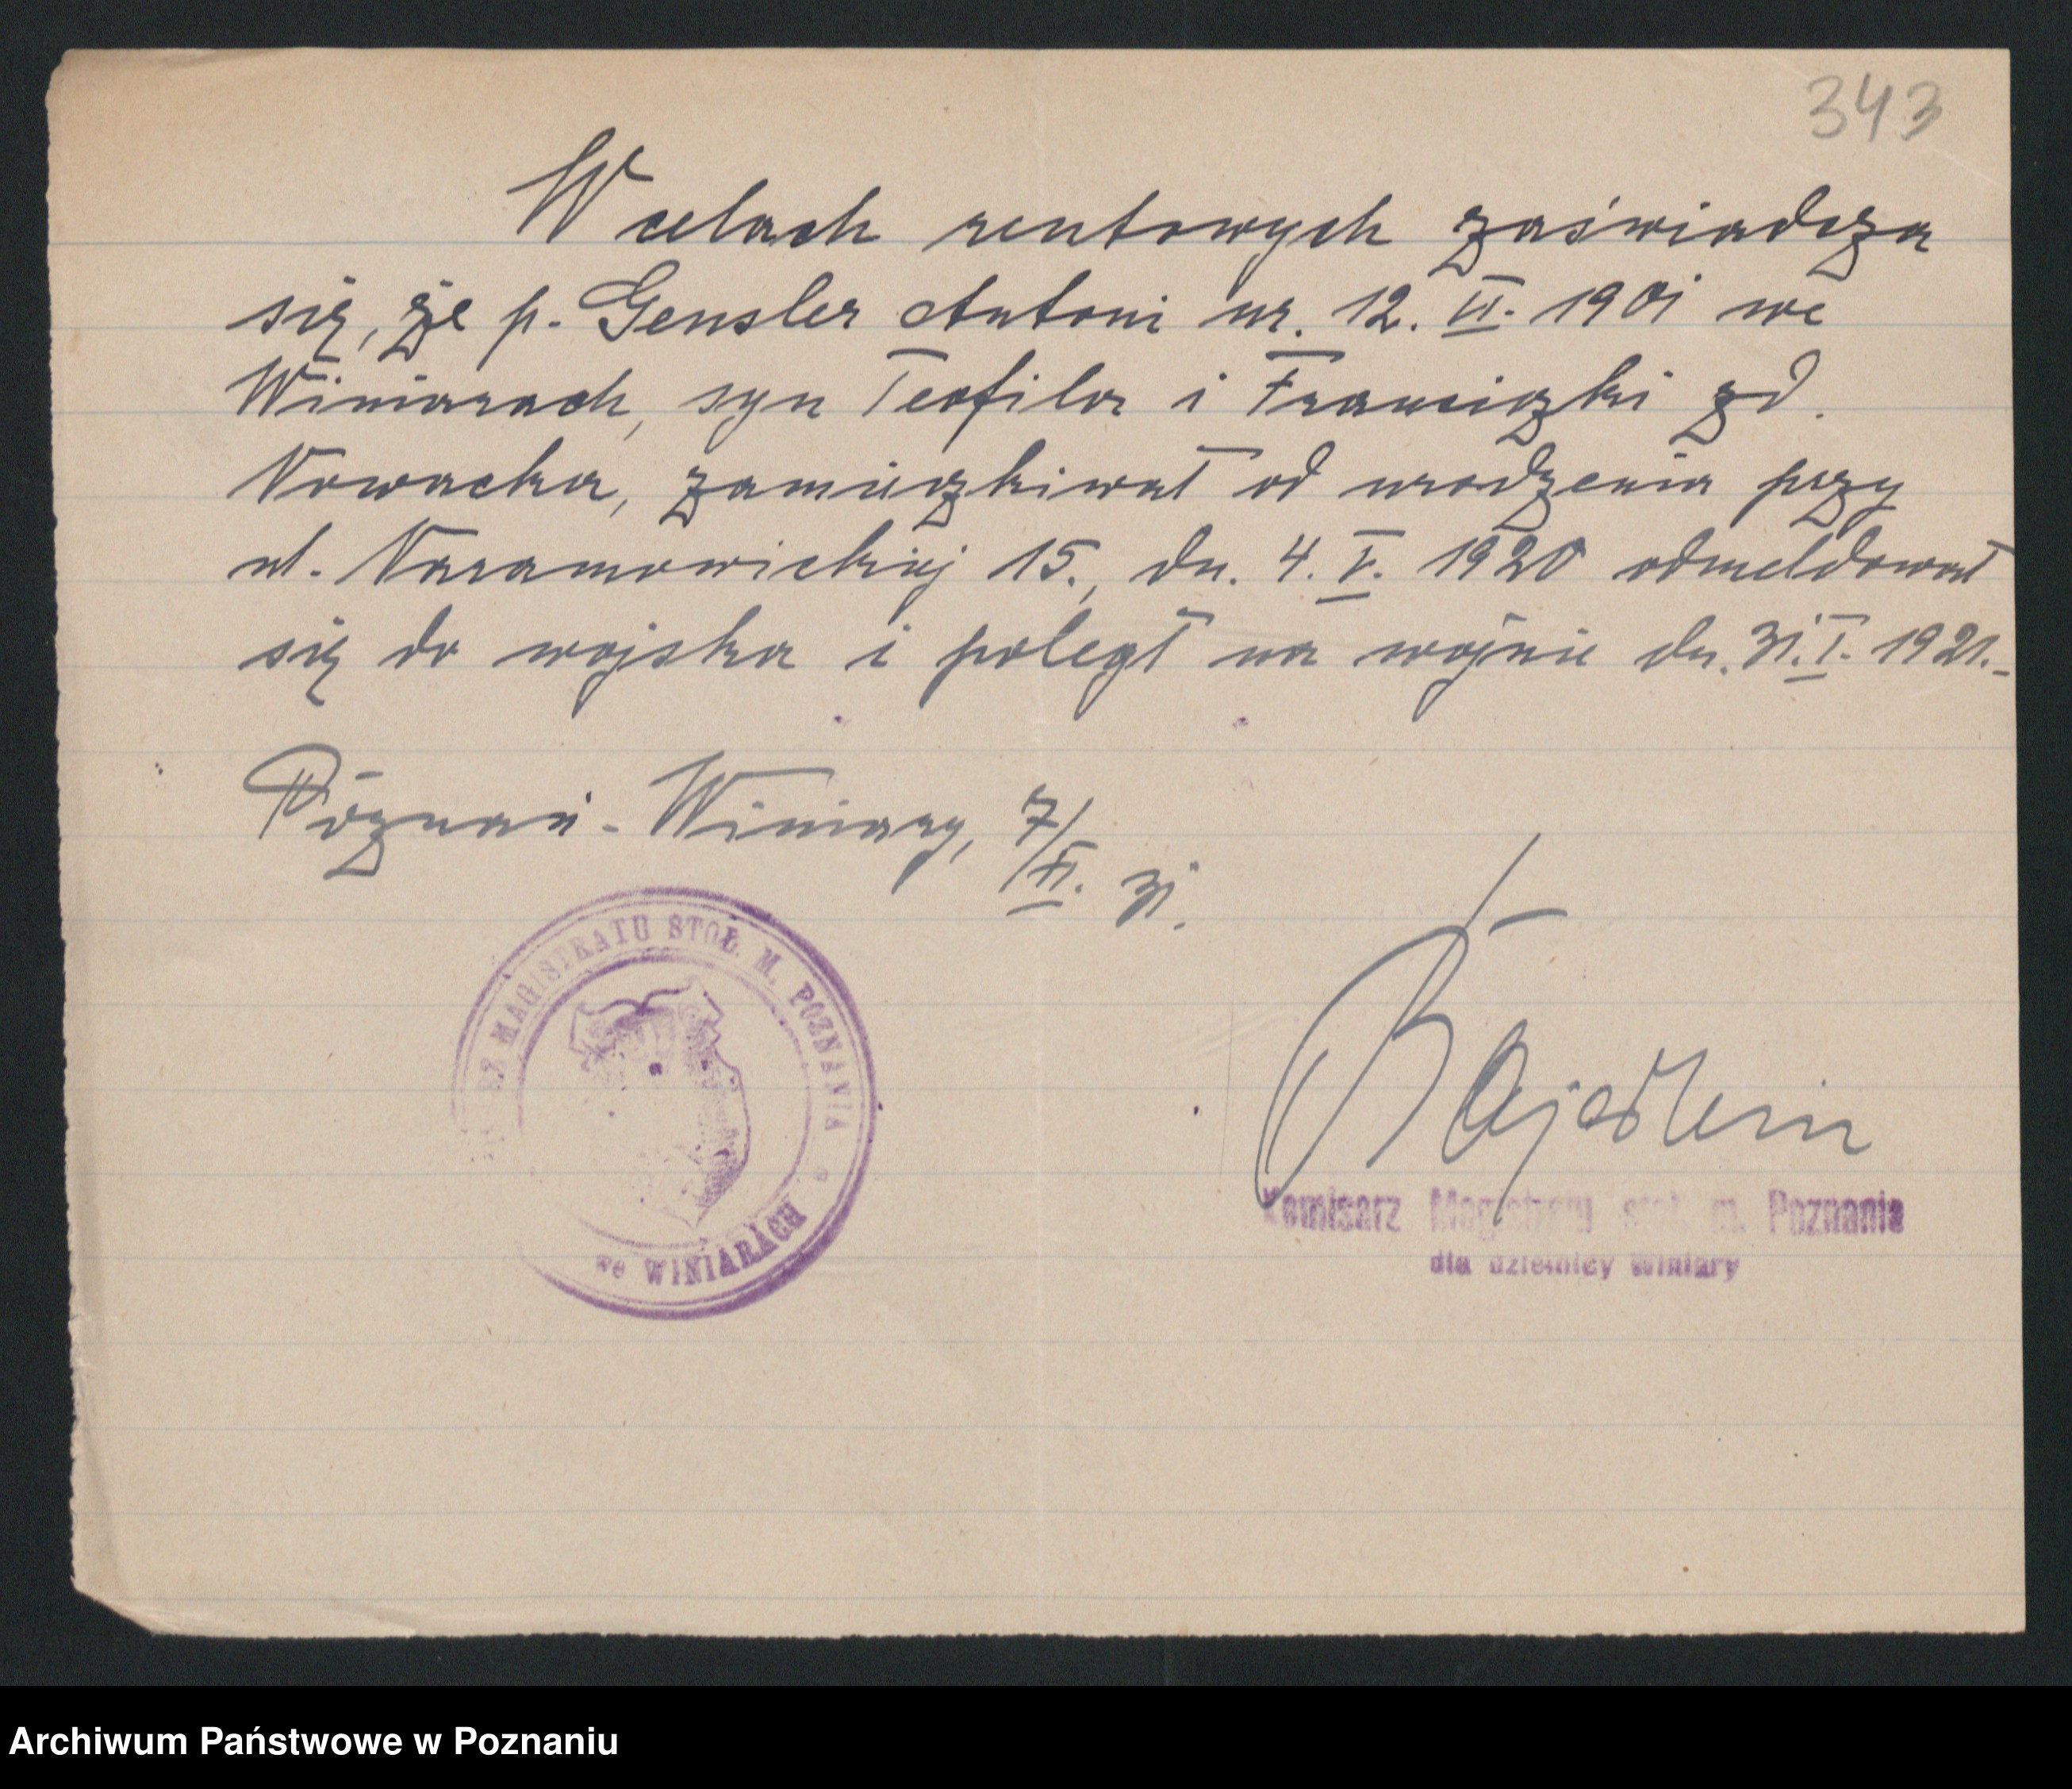 343
W celach rentowych zaświadcza
się, że p. Gensler Antoni ur. 12. VI. 1901 we
Winiarach, syn Teofila i Franciszki zd.
Nowacka, zamieszkiwał od urodzenia przy
ul. Naramowickiej 15., dn. 4. V. 1920 odmeldował
się do wojska i poległ na wojnie dn. 31. I. 1921.-
Poznań - Winiary, 7/XI. 31.
MAGISTRATU STOŁ. M. POZNANIA
we WINIARACH
Komisarz Magistratu stoł. m. Poznania
dla dzielnicy Winiary
Archiwum Państwowe w Poznaniu